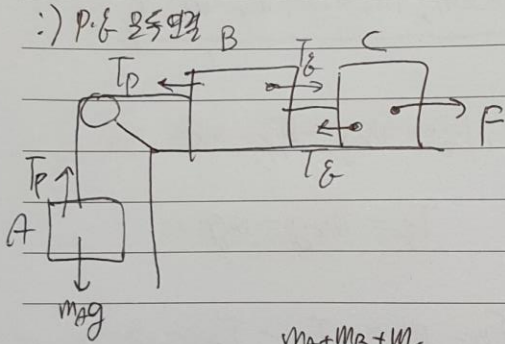 :) P.Q 모두 연결
B
C
T_P
T_Q
F
T_Q
T_P
A
m_Ag
m_A+m_B+m_C